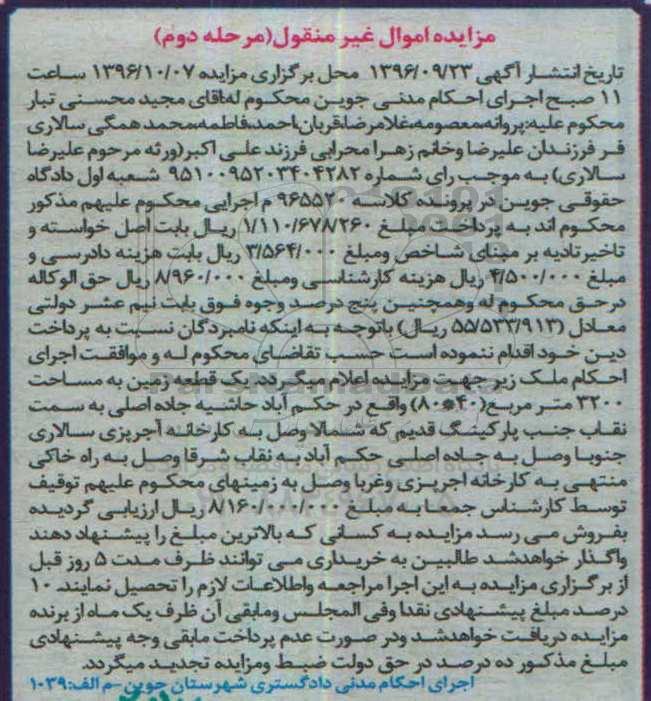 مزایده اموال غیر منقول(مرحله دوم)
تاریخ انتشار آگهی ۱۳۹۶/۰۹/۲۳ محل برگزاری مزایده ۱۳۹۶/۱۰/۰۷ ساعت
۱۱ صبح اجرای احکام مدنی جوین محکوم له:آقای مجید محسنی تبار
محکوم علیه:پروانه،معصومه،غلامرضا،قربان،احمد،فاطمه،محمد همگی سالاری
فر فرزندان علیرضا وخانم زهرا محرابی فرزند علی اکبر(ورثه مرحوم علیرضا
سالاری) به موجب رای شماره ۹۵۱۰۰۹۵۲۰۳۴۰۴۲۸۲ شعبه اول دادگاه
حقوقی جوین در پرونده کلاسه ۹۶۵۵۲۰ م اجرایی محکوم علیهم مذکور
محکوم اند به پرداخت مبلغ ۱/۱۱۰/۶۷۸/۲۶۰ ریال بابت اصل خواسته و
تاخیرتادیه بر مبنای شاخص ومبلغ ۳/۵۶۴/۰۰۰ ریال بابت هزینه دادرسی و
مبلغ ۴/۵۰۰/۰۰۰ ریال هزینه کارشناسی ومبلغ ۸/۹۶۰/۰۰۰ ریال حق الوکاله
درحق محکوم له وهمچنین پنج درصد وجوه فوق بابت نیم عشر دولتی
معادل (۵۵/۵۳۳/۹۱۳ ریال) باتوجه به اینکه نامبردگان نسبت به پرداخت
دین خود اقدام ننموده است حسب تقاضای محکوم له و موافقت اجرای
احکام ملک زیر جهت مزایده اعلام میگردد. یک قطعه زمین به مساحت
۳۲۰۰ متر مربع(۴۰*۸۰) واقع در حکم آباد حاشیه جاده اصلی به سمت
نقاب جنب پارکینگ قدیم که شمالا وصل به کارخانه آجرپزی سالاری
جنوبا وصل به جاده اصلی حکم آباد به نقاب شرقا وصل به راه خاکی
منتهی به کارخانه اجرپزی وغربا وصل به زمینهای محکوم علیهم توقیف
توسط کارشناس جمعا به مبلغ ۸/۱۶۰/۰۰۰/۰۰۰ ریال ارزیابی گردیده
بفروش می رسد مزایده به کسانی که بالاترین مبلغ را پیشنهاد دهند
واگذار خواهدشد طالبین به خریداری می توانند ظرف مدت ۵ روز قبل
از برگزاری مزایده به این اجرا مراجعه واطلاعات لازم را تحصیل نمایند. ۱۰
درصد مبلغ پیشنهادی نقدا وفی المجلس ومابقی آن ظرف یک ماه از برنده
مزایده دریافت خواهدشد ودر صورت عدم پرداخت مابقی وجه پیشنهادی
مبلغ مذکور ده درصد در حق دولت ضبط ومزایده تجدید میگردد.
اجرای احکام مدنی دادگستری شهرستان جوین -م الف:۱۰۳۹